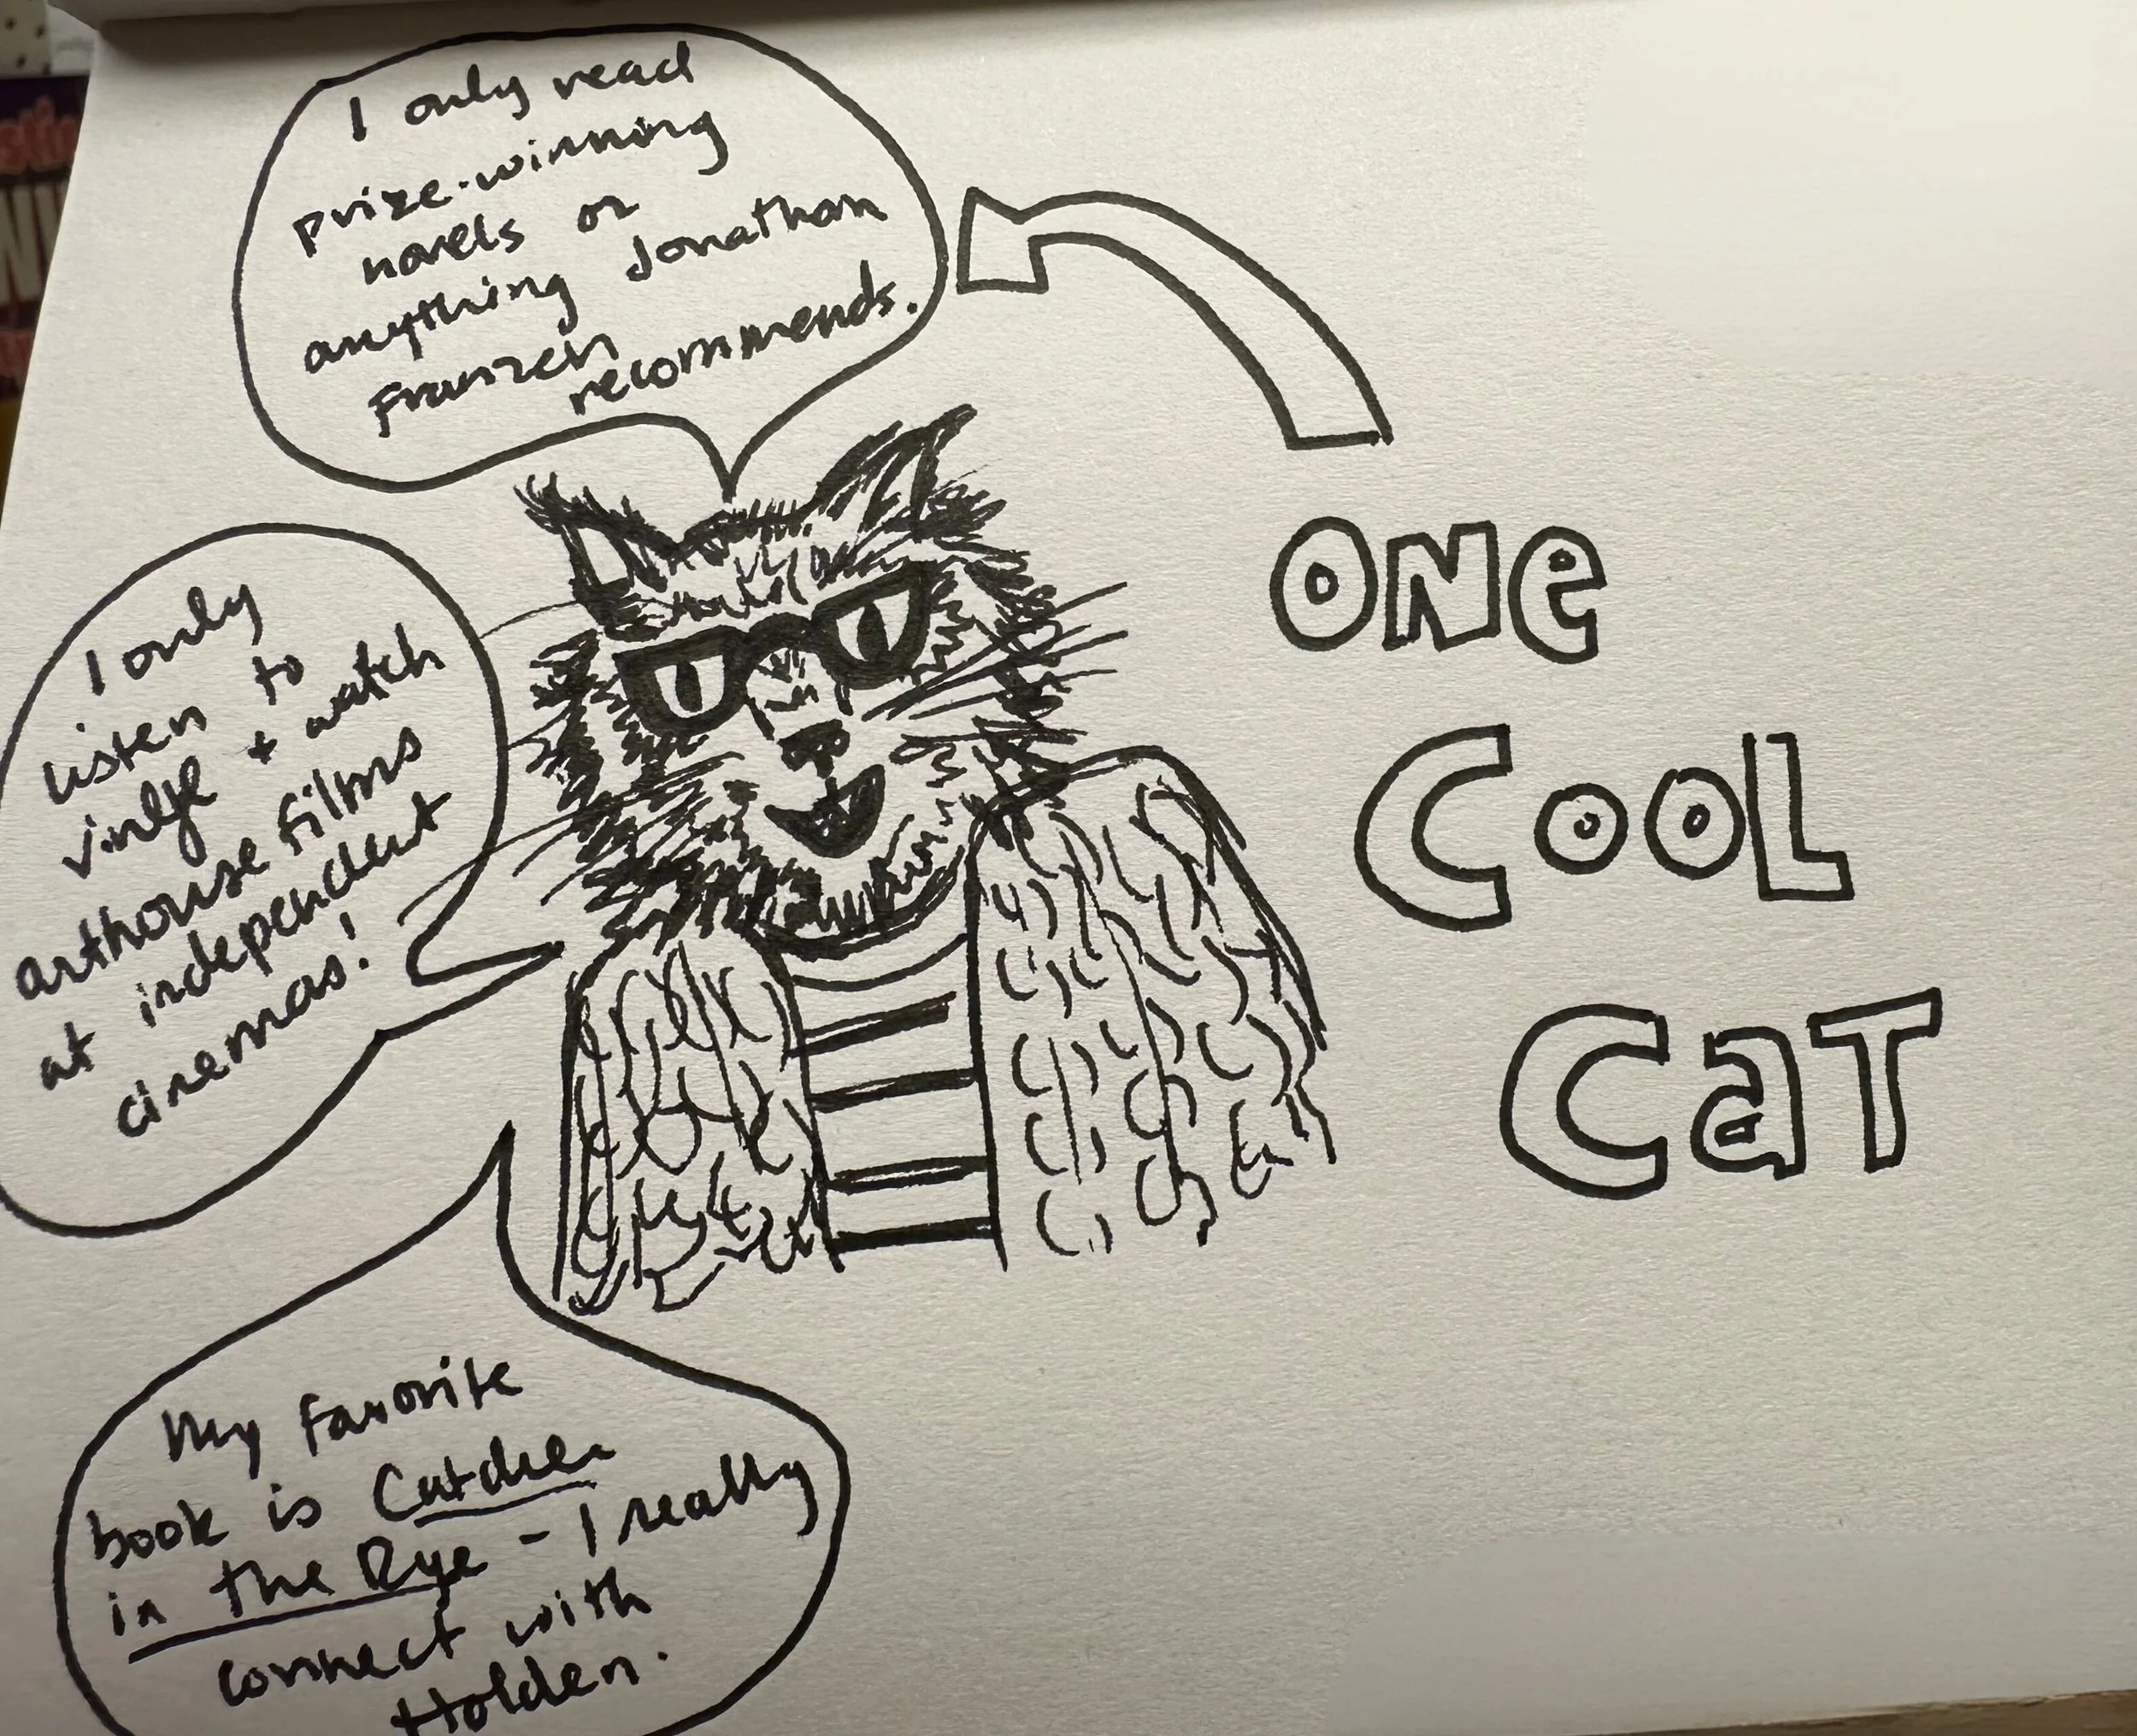 I only read
prize-winning
novels or
anything Jonathan
Franzen
recommends.
ONe
COOL
CaT
I only
listen to
+ watch
arthouse films
at independent
cinemas!
My favorite
book is Catcher
in the Rye - I really
connect with
Holden.